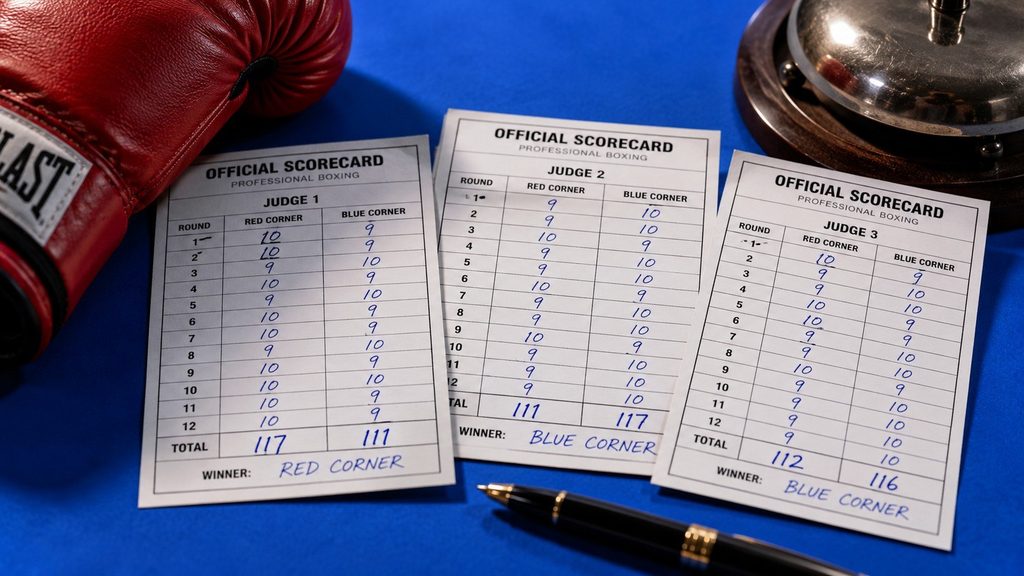 LAST
OFFICIAL SCORECARD
PROFESSIONAL BOXING
JUDGE 1
ROUND RED CORNER BLUE CORNER
1 10 9
2 10 9
3 9 10
4 10 9
5 9 10
6 10 9
7 10 9
8 9 10
9 10 9
10 10 10
11 10 9
12 10 9
TOTAL 117 111
WINNER: RED CORNER
OFFICIAL SCORECARD
PROFESSIONAL BOXING
JUDGE 2
ROUND RED CORNER BLUE CORNER
1 9 10
2 9 10
3 10 9
4 9 10
5 9 10
6 10 9
7 9 10
8 9 10
9 10 9
10 9 10
11 9 10
12 9 10
TAL 111 117
WINNER: BLUE CORNER
OFFICIAL SCORECARD
PROFESSIONAL BOXING
JUDGE 3
ROUND RED CORNER BLUE CORNER
1 10 9
2 9 10
3 9 10
4 10 9
5 10 9
6 9 10
7 9 10
8 10 9
9 9 10
10 9 10
11 9 10
12 9 10
TOTAL 112 116
WINNER: BLUE CORNER